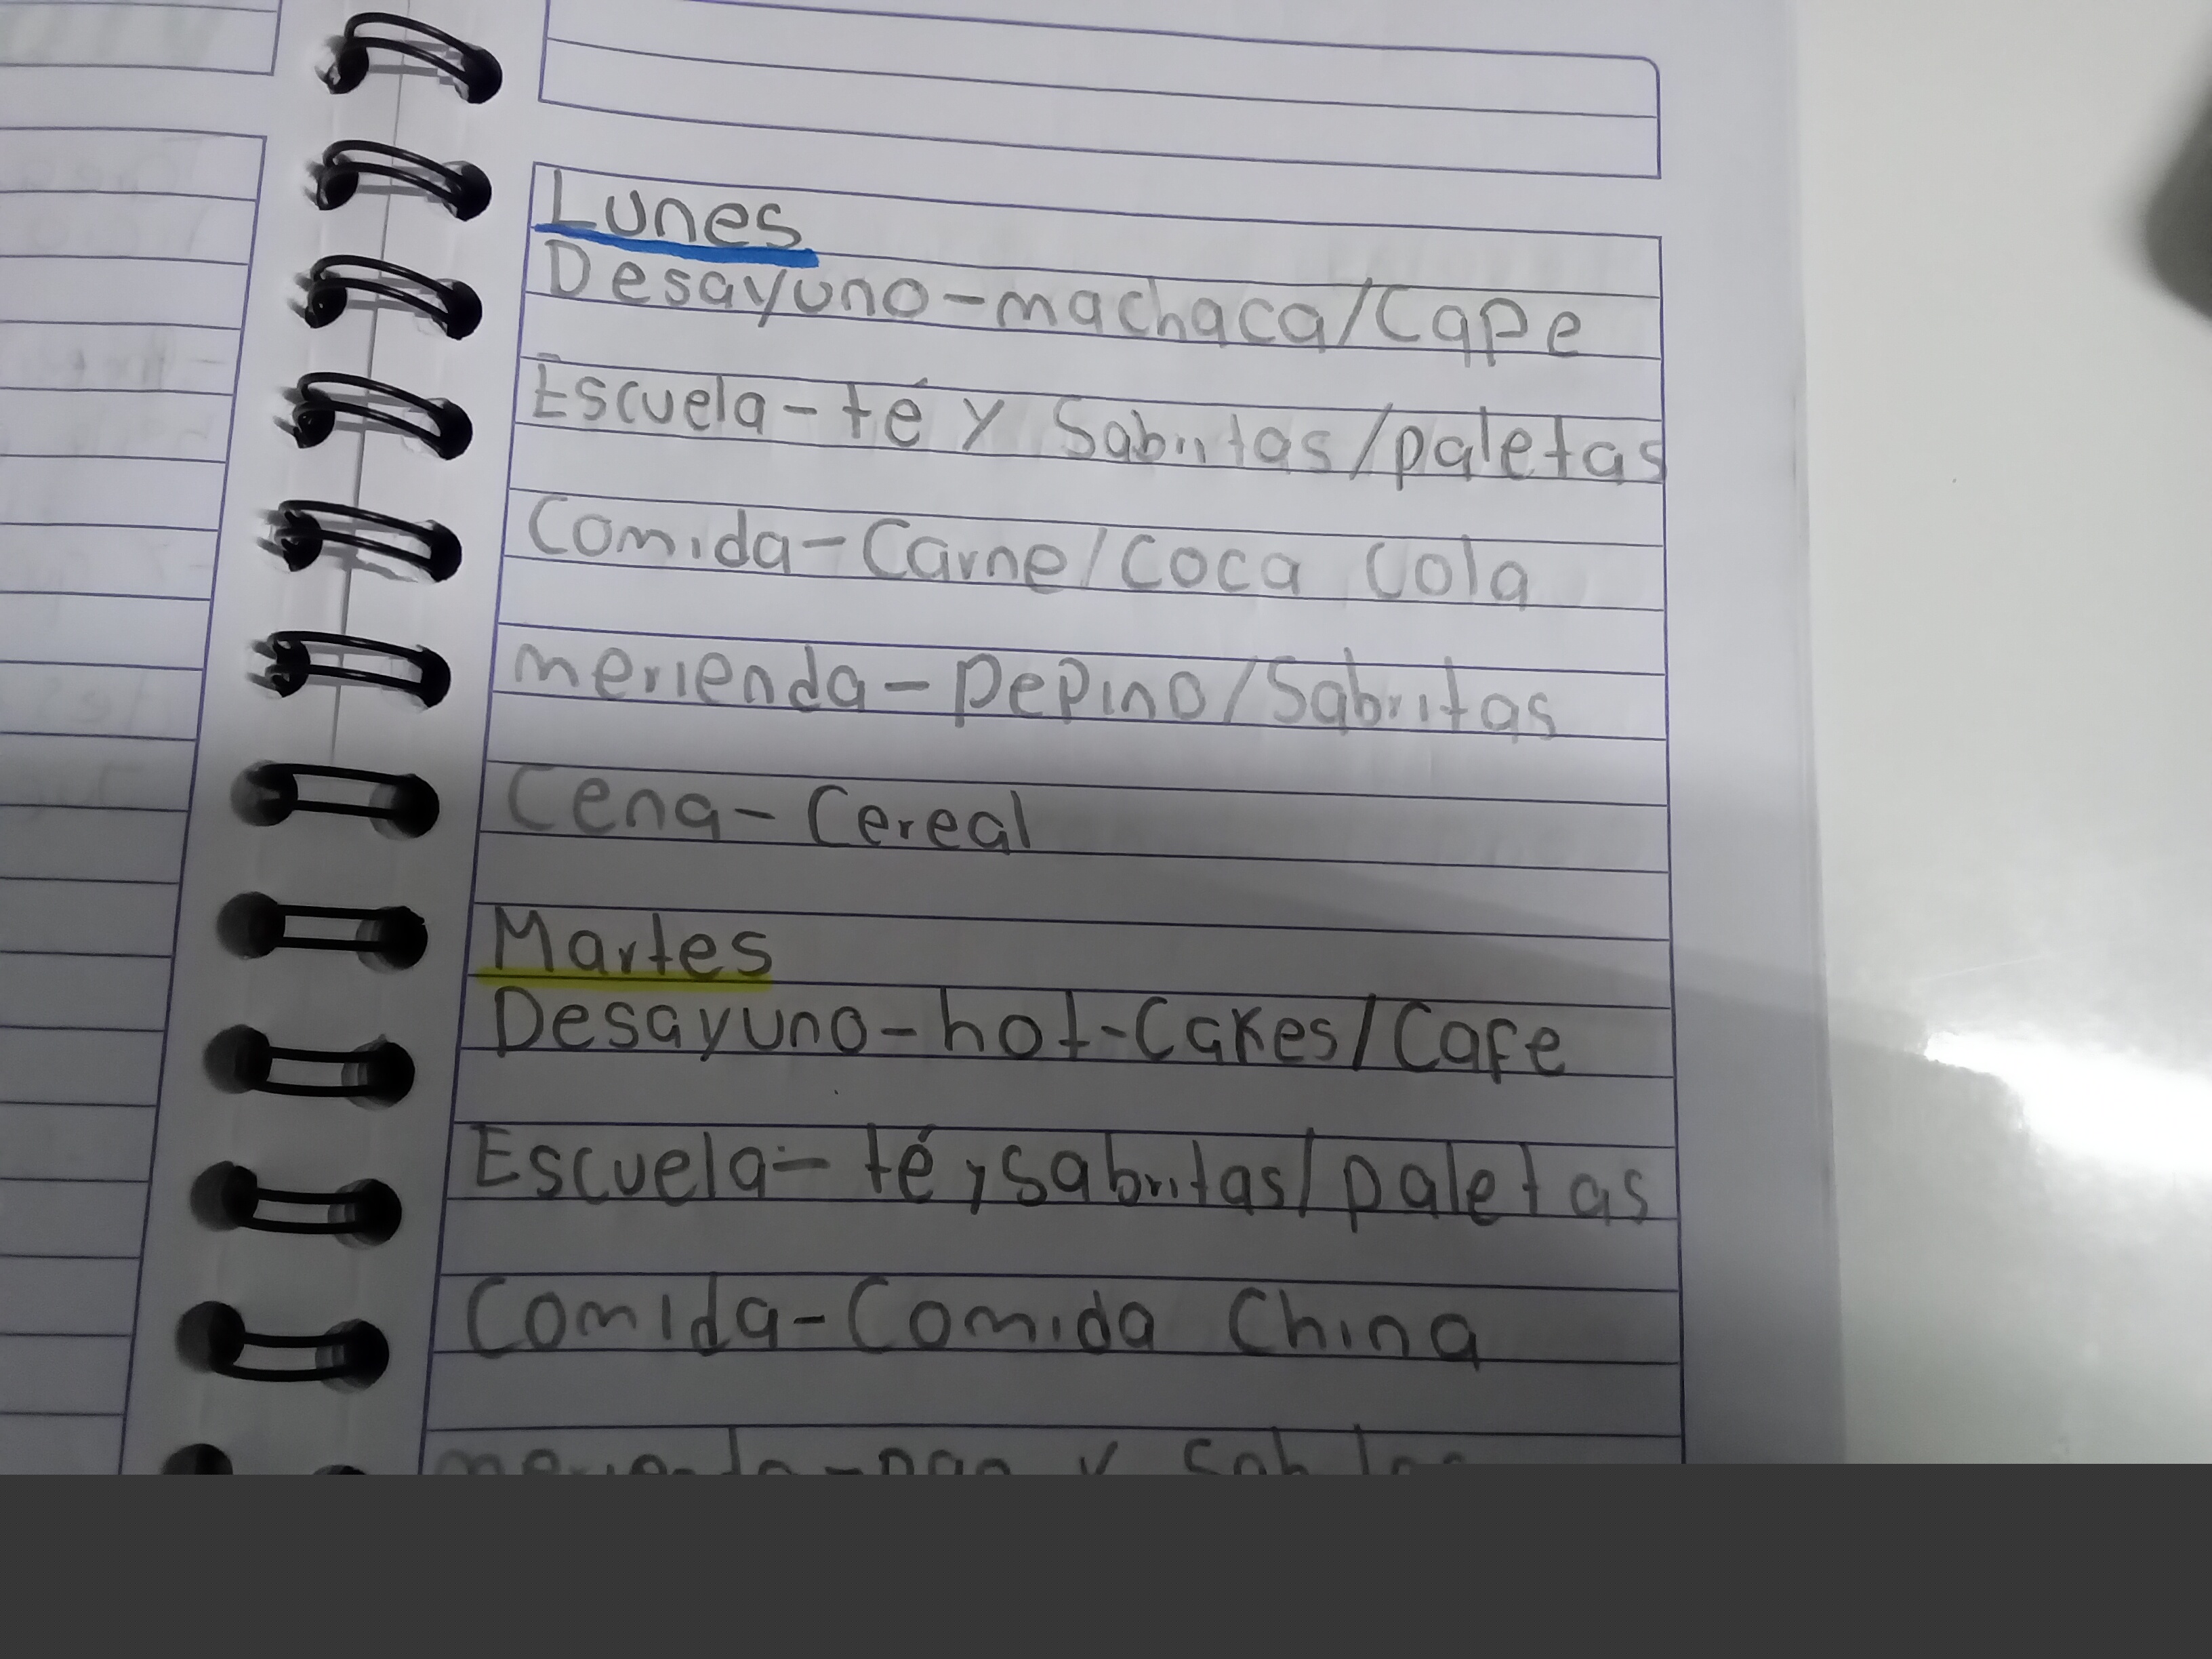 Lunes
Desayuno-machaca/Cape
Escuela-té y Sabritas/paletas
Comida-Carne/Coca Cola
merienda-pepino/Sabritas
Cena-Cereal
Martes
Desayuno-hot-Cakes/Cafe
Escuela-té y sabritas/paletas
Comida-Comida China
merienda-pan y